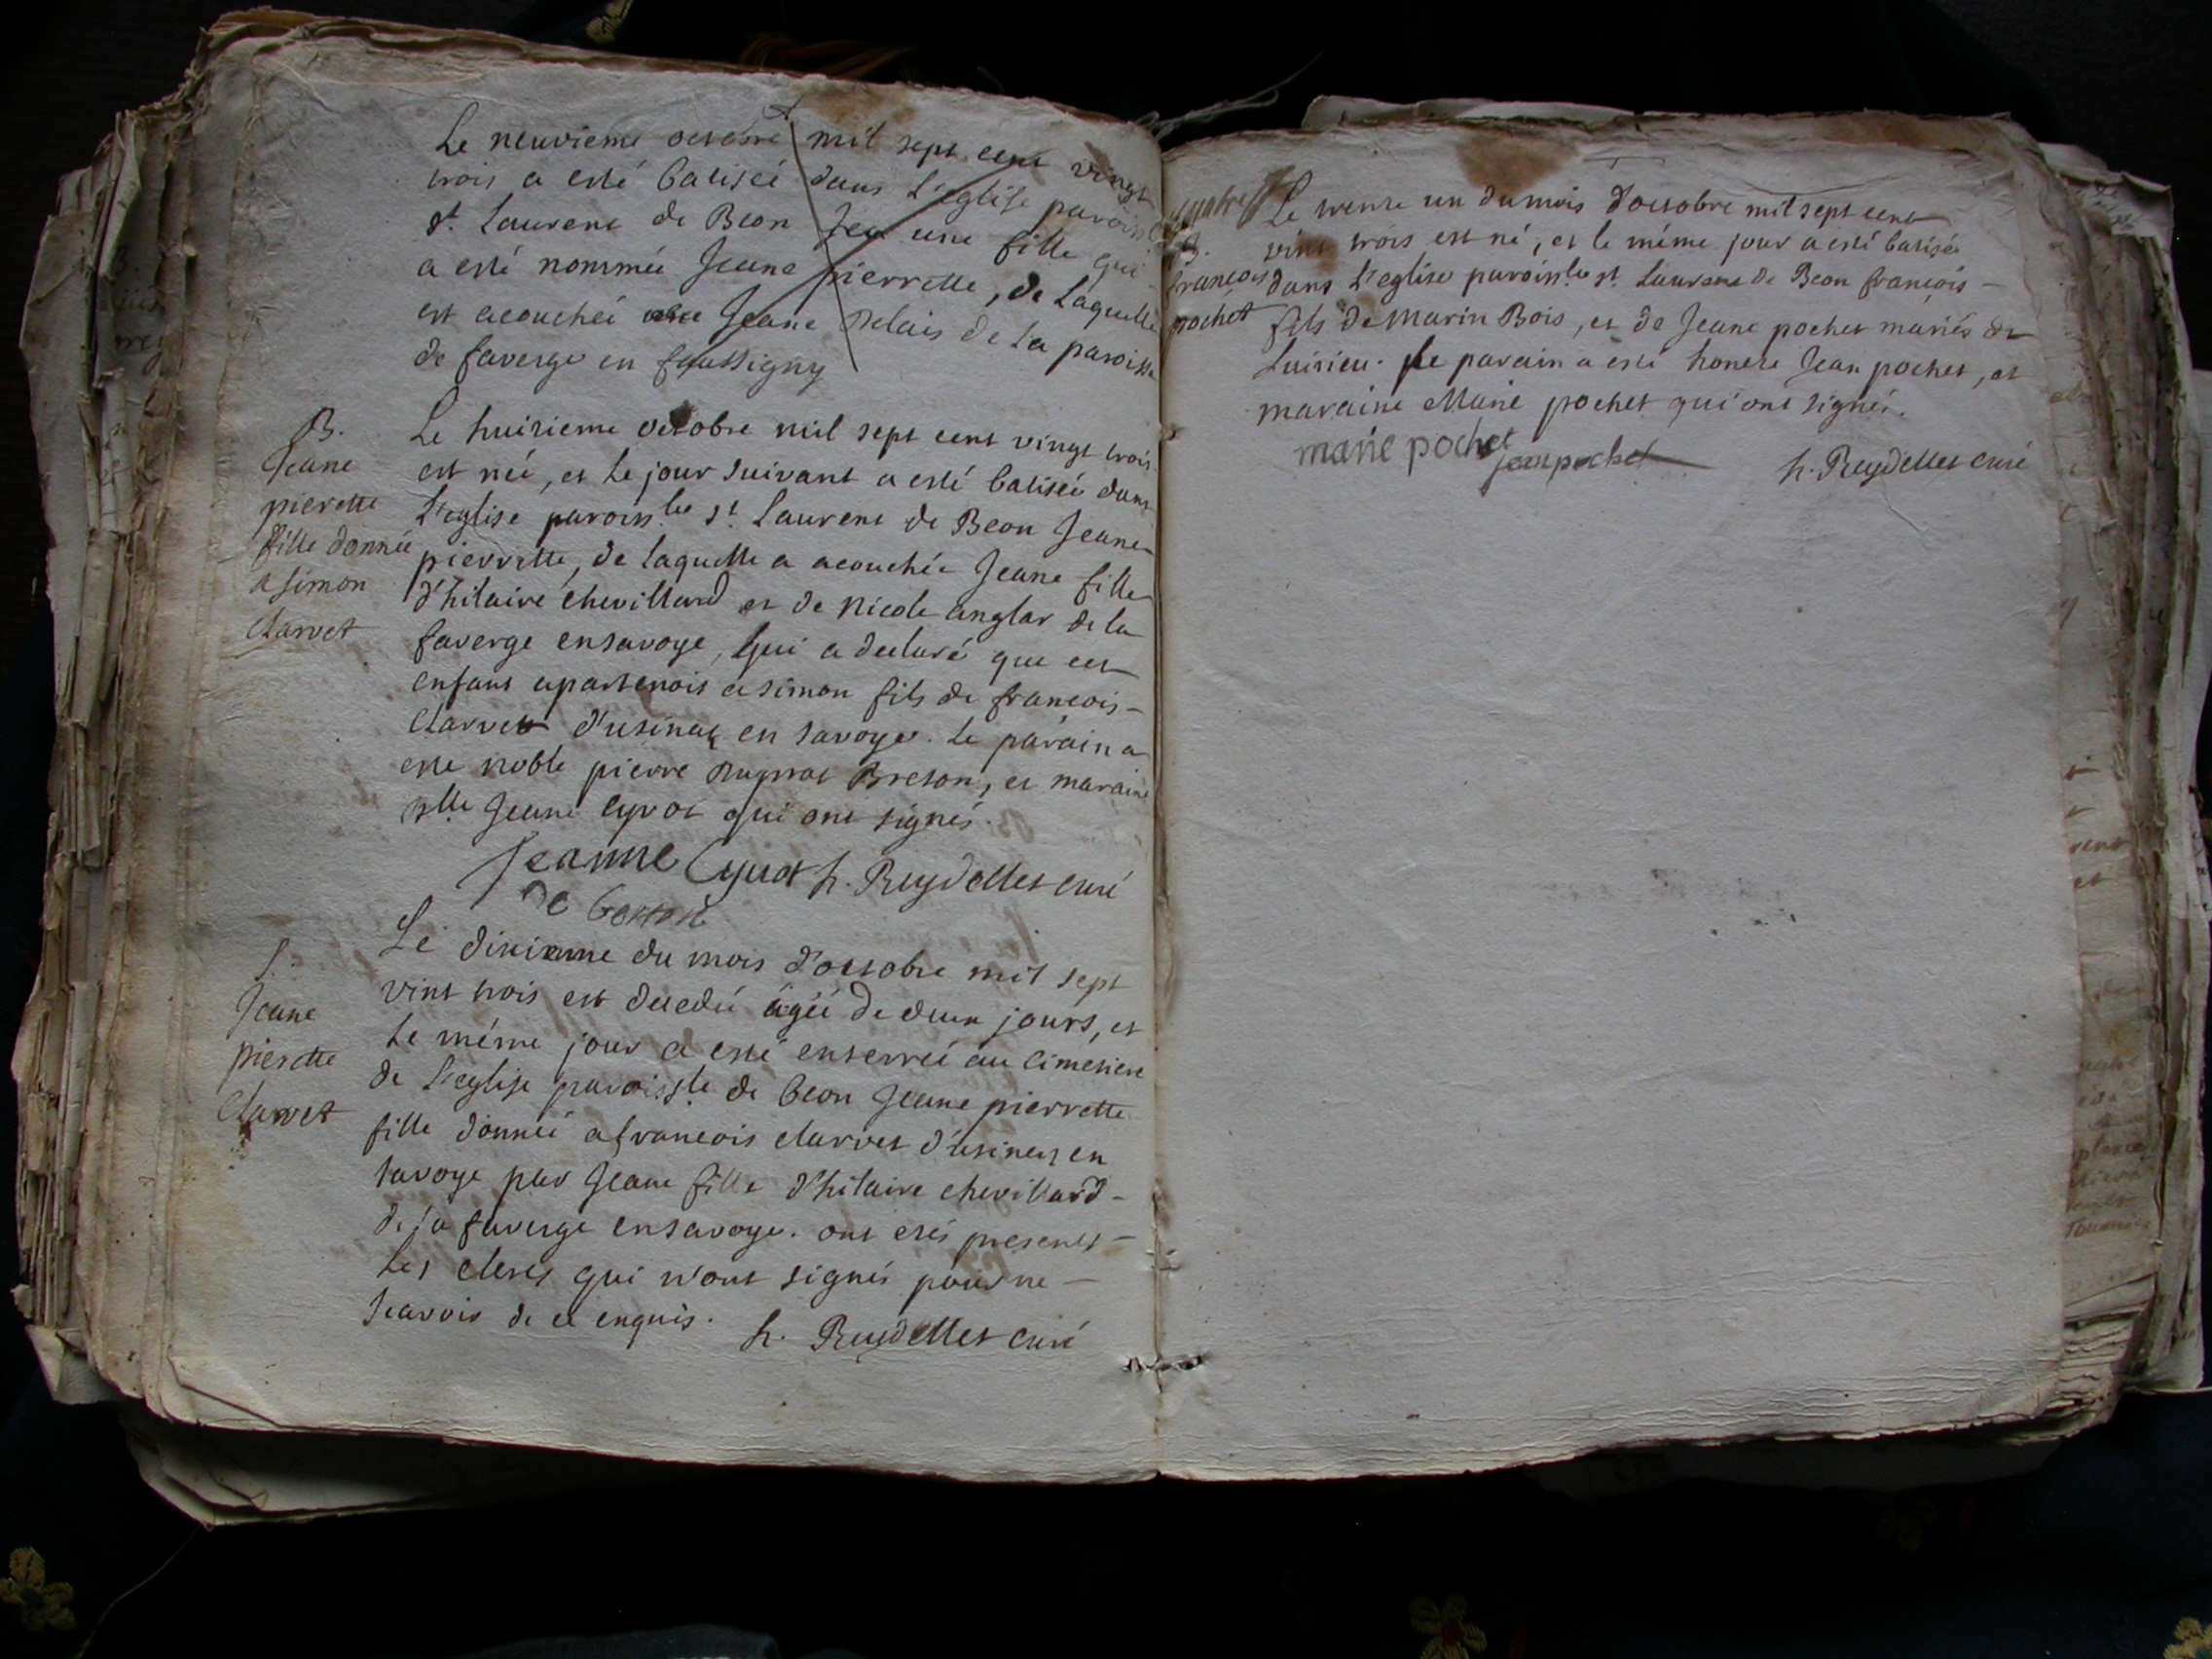 Le neuvieme octobre mil sept cent vingt
trois a esté batisée dans l'eglise paroiss
st. Laurent de Beon une fille qui
a esté nommée Jeane pierrette, de laquelle
est acouchée Jeane Delais de la paroisse
de faverge en faussigny
B.
Jeane
pierette
fille donnée
a simon
Clarvet
Le huitieme octobre mil sept cent vingt trois
est née, et le jour suivant a esté batisée dans
L'eglise paroissle st. Laurent de Beon Jeane
pierrette, de laquelle a acouchée Jeane fille
d'hilaire chevillard et de Nicole anglar de la
faverge ensavoye, qui a declaré que cet
enfant apartenoit a simon fils de francois
Clarvet d'usinat en savoye. Le parain a
esté noble pierre Breton, et maraine
Jeane Cyvot qui ont signés.
Jeanne Cyvot h. Reydellet curé
De
S.
Jeane
pierette
Clarvet
Le dixieme du mois d'octobre mil sept
vint trois est decedée ágée de deux jours, et
le méme jour a esté enterrée au cimetiere
de L'eglise paroissle de beon Jeane pierrette
fille donnée a francois clarvet d'usinens en
savoye par Jeane fille d'hilaire chevillard
de la faverge ensavoye. ont etés presents
Les clercs qui n'ont signés pour ne
scavoir de ce enquis. h. Reydellet curé
B.
francois
pochet
Le trente un du mois d'octobre mil sept cent
vint trois est né, et le méme jour a esté batisée
dans L'eglise paroissle st. Laurent de Beon françois
fils de Marin Bois, et de Jeane pochet mariés de
Luirieu. Le parain a esté honete Jean pochet, et
maraine Marie pochet qui ont signés.
marie pochet jean pochet h. Reydellet curé